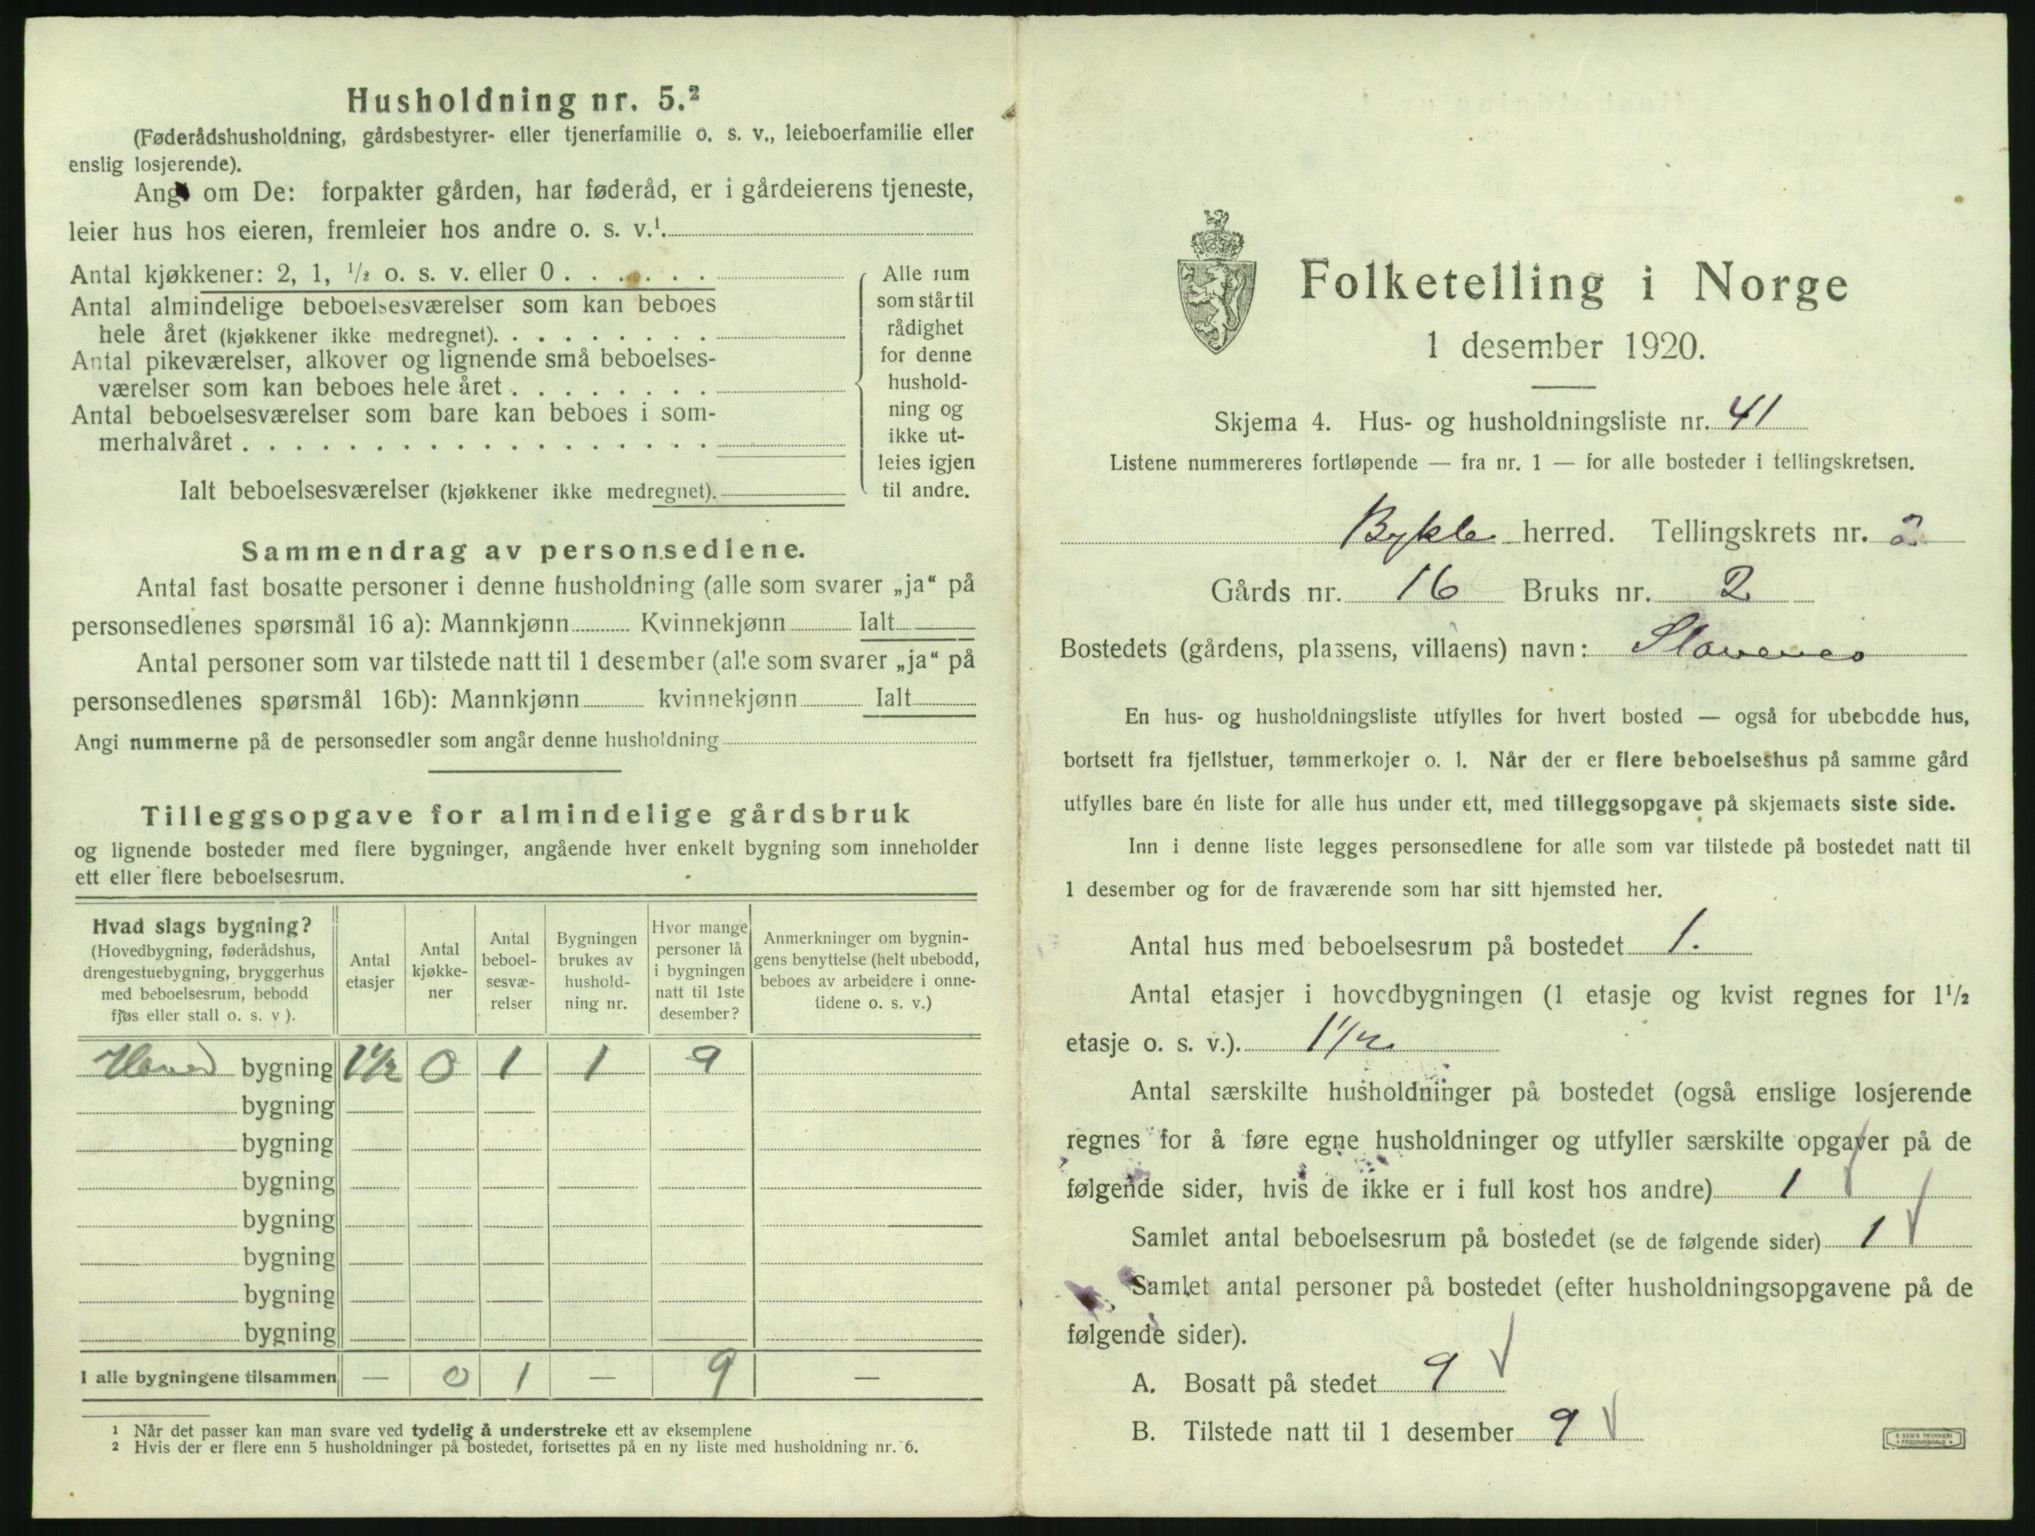 Husholdning nr. 5.²
(Føderådshusholdning, gårdsbestyrer- eller tjenerfamilie o. s. v., leieboerfamilie eller
enslig losjerende).
Angi om De: forpakter gården, har føderåd, er i gårdeierens tjeneste,
leier hus hos eieren, fremleier hos andre o. s. v.¹
Antal kjøkkener: 2, 1, ¹/₂ o. s. v. eller 0
Antal almindelige beboelsesværelser som kan beboes
hele året (kjøkkener ikke medregnet)
Antal pikeværelser, alkover og lignende små beboelses-
værelser som kan beboes hele året
Antal beboelsesværelser som bare kan beboes i som-
merhalvåret
Ialt beboelsesværelser (kjøkkener ikke medregnet)
Alle rum
som står til
rådighet
for denne
hushold-
ning og
ikke ut-
leies igjen
til andre.
Sammendrag av personsedlene.
Antal fast bosatte personer i denne husholdning (alle som svarer „ja“ på
personsedlenes spørsmål 16 a): Mannkjønn Kvinnekjønn Ialt
Antal personer som var tilstede natt til 1 desember (alle som svarer „ja“ på
personsedlenes spørsmål 16b): Mannkjønn kvinnekjønn Ialt
Angi nummerne på de personsedler som angår denne husholdning
Tilleggsopgave for almindelige gårdsbruk
og lignende bosteder med flere bygninger, angående hver enkelt bygning som inneholder
ett eller flere beboelsesrum.
Hvad slags bygning?
(Hovedbygning, føderådshus,
drengestuebygning, bryggerhus
med beboelsesrum, bebodd
fjøs eller stall o. s. v ).
Antal
etasjer
Antal
kjøkke-
ner
Antal
beboel-
sesvæ-
relser
Bygningen
brukes av
hushold-
ning nr.
Hvor mange
personer lå
i bygningen
natt til 1ste
desember?
Anmerkninger om bygnin-
gens benyttelse (helt ubebodd,
beboes av arbeidere i onne-
tidene o. s. v.)
Hoved bygning 1½ 0 1 1 9
bygning
bygning
bygning
bygning
bygning
bygning
bygning
I alle bygningene tilsammen — 0 1 — 9 —
¹ Når det passer kan man svare ved tydelig å understreke ett av eksemplene
² Hvis der er flere enn 5 husholdninger på bostedet, fortsettes på en ny liste med husholdning nr. 6.
Folketelling i Norge
1 desember 1920.
Skjema 4. Hus- og husholdningsliste nr. 41
Listene nummereres fortløpende — fra nr. 1 — for alle bosteder i tellingskretsen.
Bykle herred. Tellingskrets nr. 2
Gårds nr. 16 Bruks nr. 2
Bostedets (gårdens, plassens, villaens) navn:
En hus- og husholdningsliste utfylles for hvert bosted — også for ubebodde hus,
bortsett fra fjellstuer, tømmerkojer o. l. Når der er flere beboelseshus på samme gård
utfylles bare én liste for alle hus under ett, med tilleggsopgave på skjemaets siste side.
Inn i denne liste legges personsedlene for alle som var tilstede på bostedet natt til
1 desember og for de fraværende som har sitt hjemsted her.
Antal hus med beboelsesrum på bostedet 1.
Antal etasjer i hovedbygningen (1 etasje og kvist regnes for 1¹/₂
etasje o. s. v.). 1½
Antal særskilte husholdninger på bostedet (også enslige losjerende
regnes for å føre egne husholdninger og utfyller særskilte opgaver på de
følgende sider, hvis de ikke er i full kost hos andre) 1
Samlet antal beboelsesrum på bostedet (se de følgende sider) 1
Samlet antal personer på bostedet (efter husholdningsopgavene på de
følgende sider).
A. Bosatt på stedet 9
B. Tilstede natt til 1 desember 9